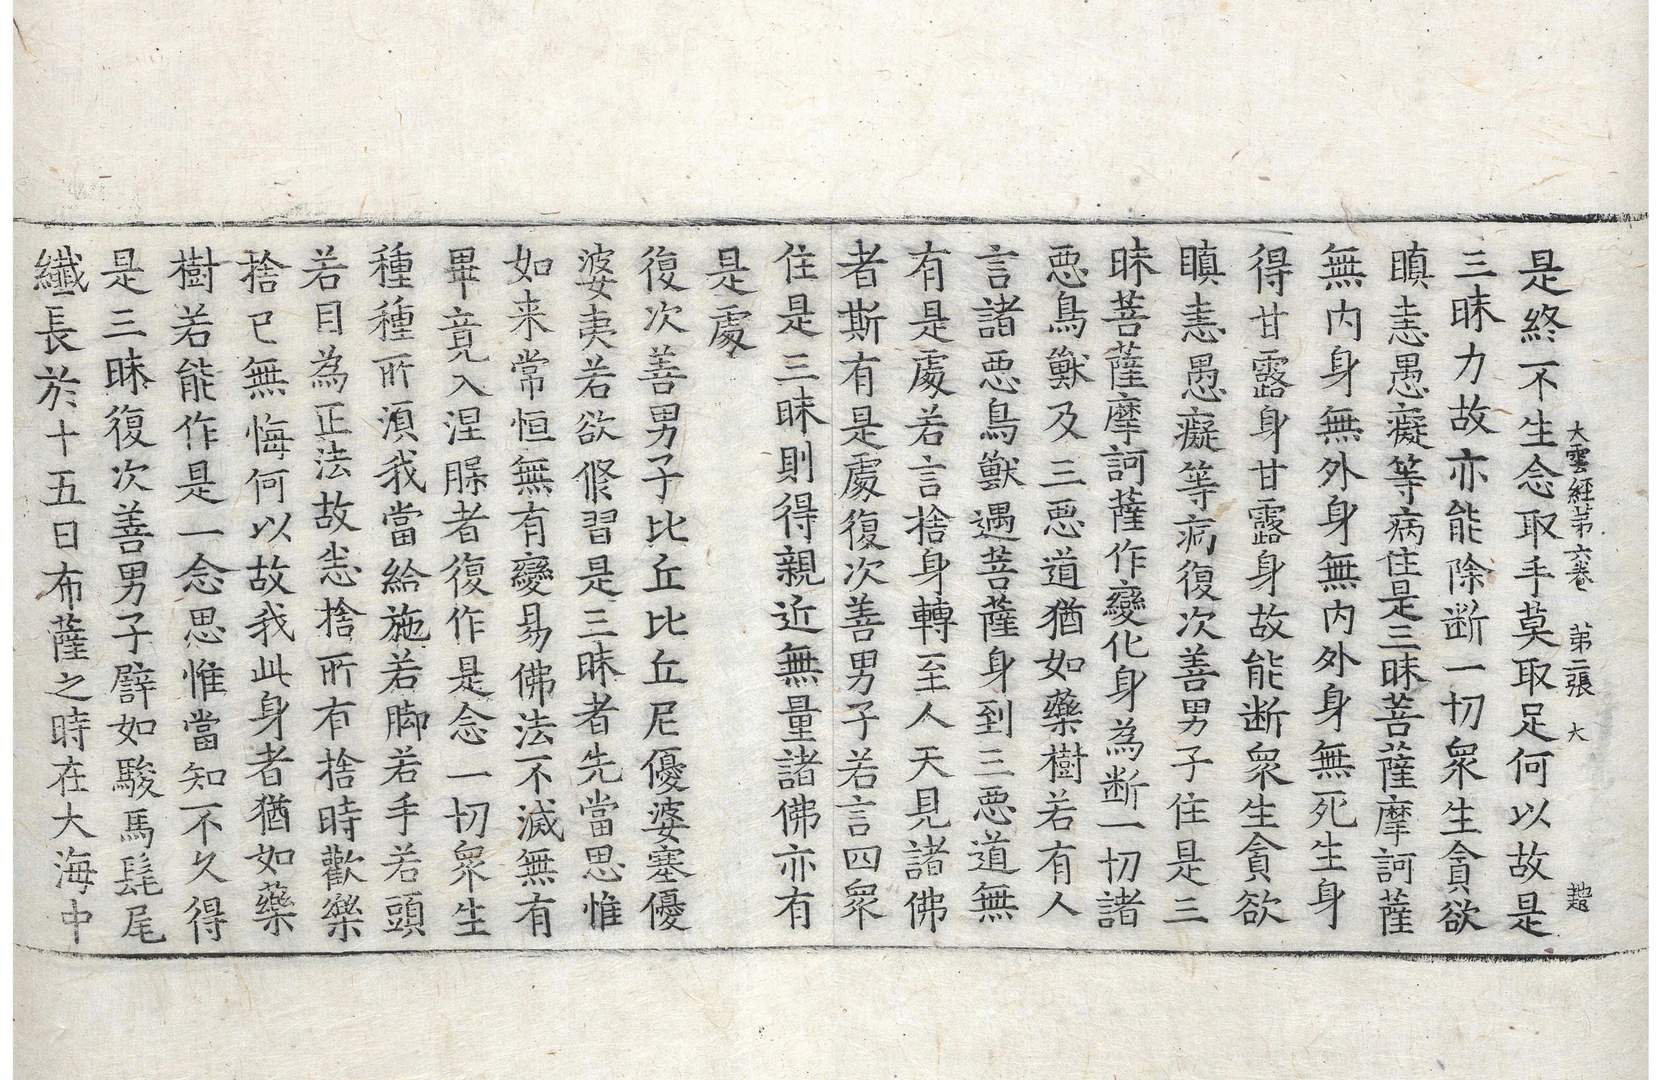 大雲經第六卷 第二張 大 趙
是終不生念取手莫取足何以故是
三昧力故亦能除断一切衆生貪欲
瞋恚愚癡等病住是三昧菩薩摩訶薩
無内身無外身無内外身無死生身
得甘露身甘露身故能断衆生貪欲
瞋恚愚癡等病復次善男子住是三
昧菩薩摩訶薩作變化身為断一切諸
惡鳥獸及三惡道猶如藥樹若有人
言諸惡鳥獸遇菩薩身到三惡道無
有是處若言捨身轉至人天見諸佛
者斯有是處復次善男子若言四衆
住是三昧則得親近無量諸佛亦有
是處
復次善男子比丘比丘尼優婆塞優
婆夷若欲修習是三昧者先當思惟
如来常恒無有變易佛法不滅無有
畢竟入涅槃者復作是念一切衆生
種種所湏我當給施若脚若手若頭
若目為正法故悉捨所有捨時歡樂
捨已無悔何以故我此身者猶如藥
樹若能作是一念思惟當知不久得
是三昧復次善男子譬如駿馬髦尾
纖長於十五日布薩之時在大海中